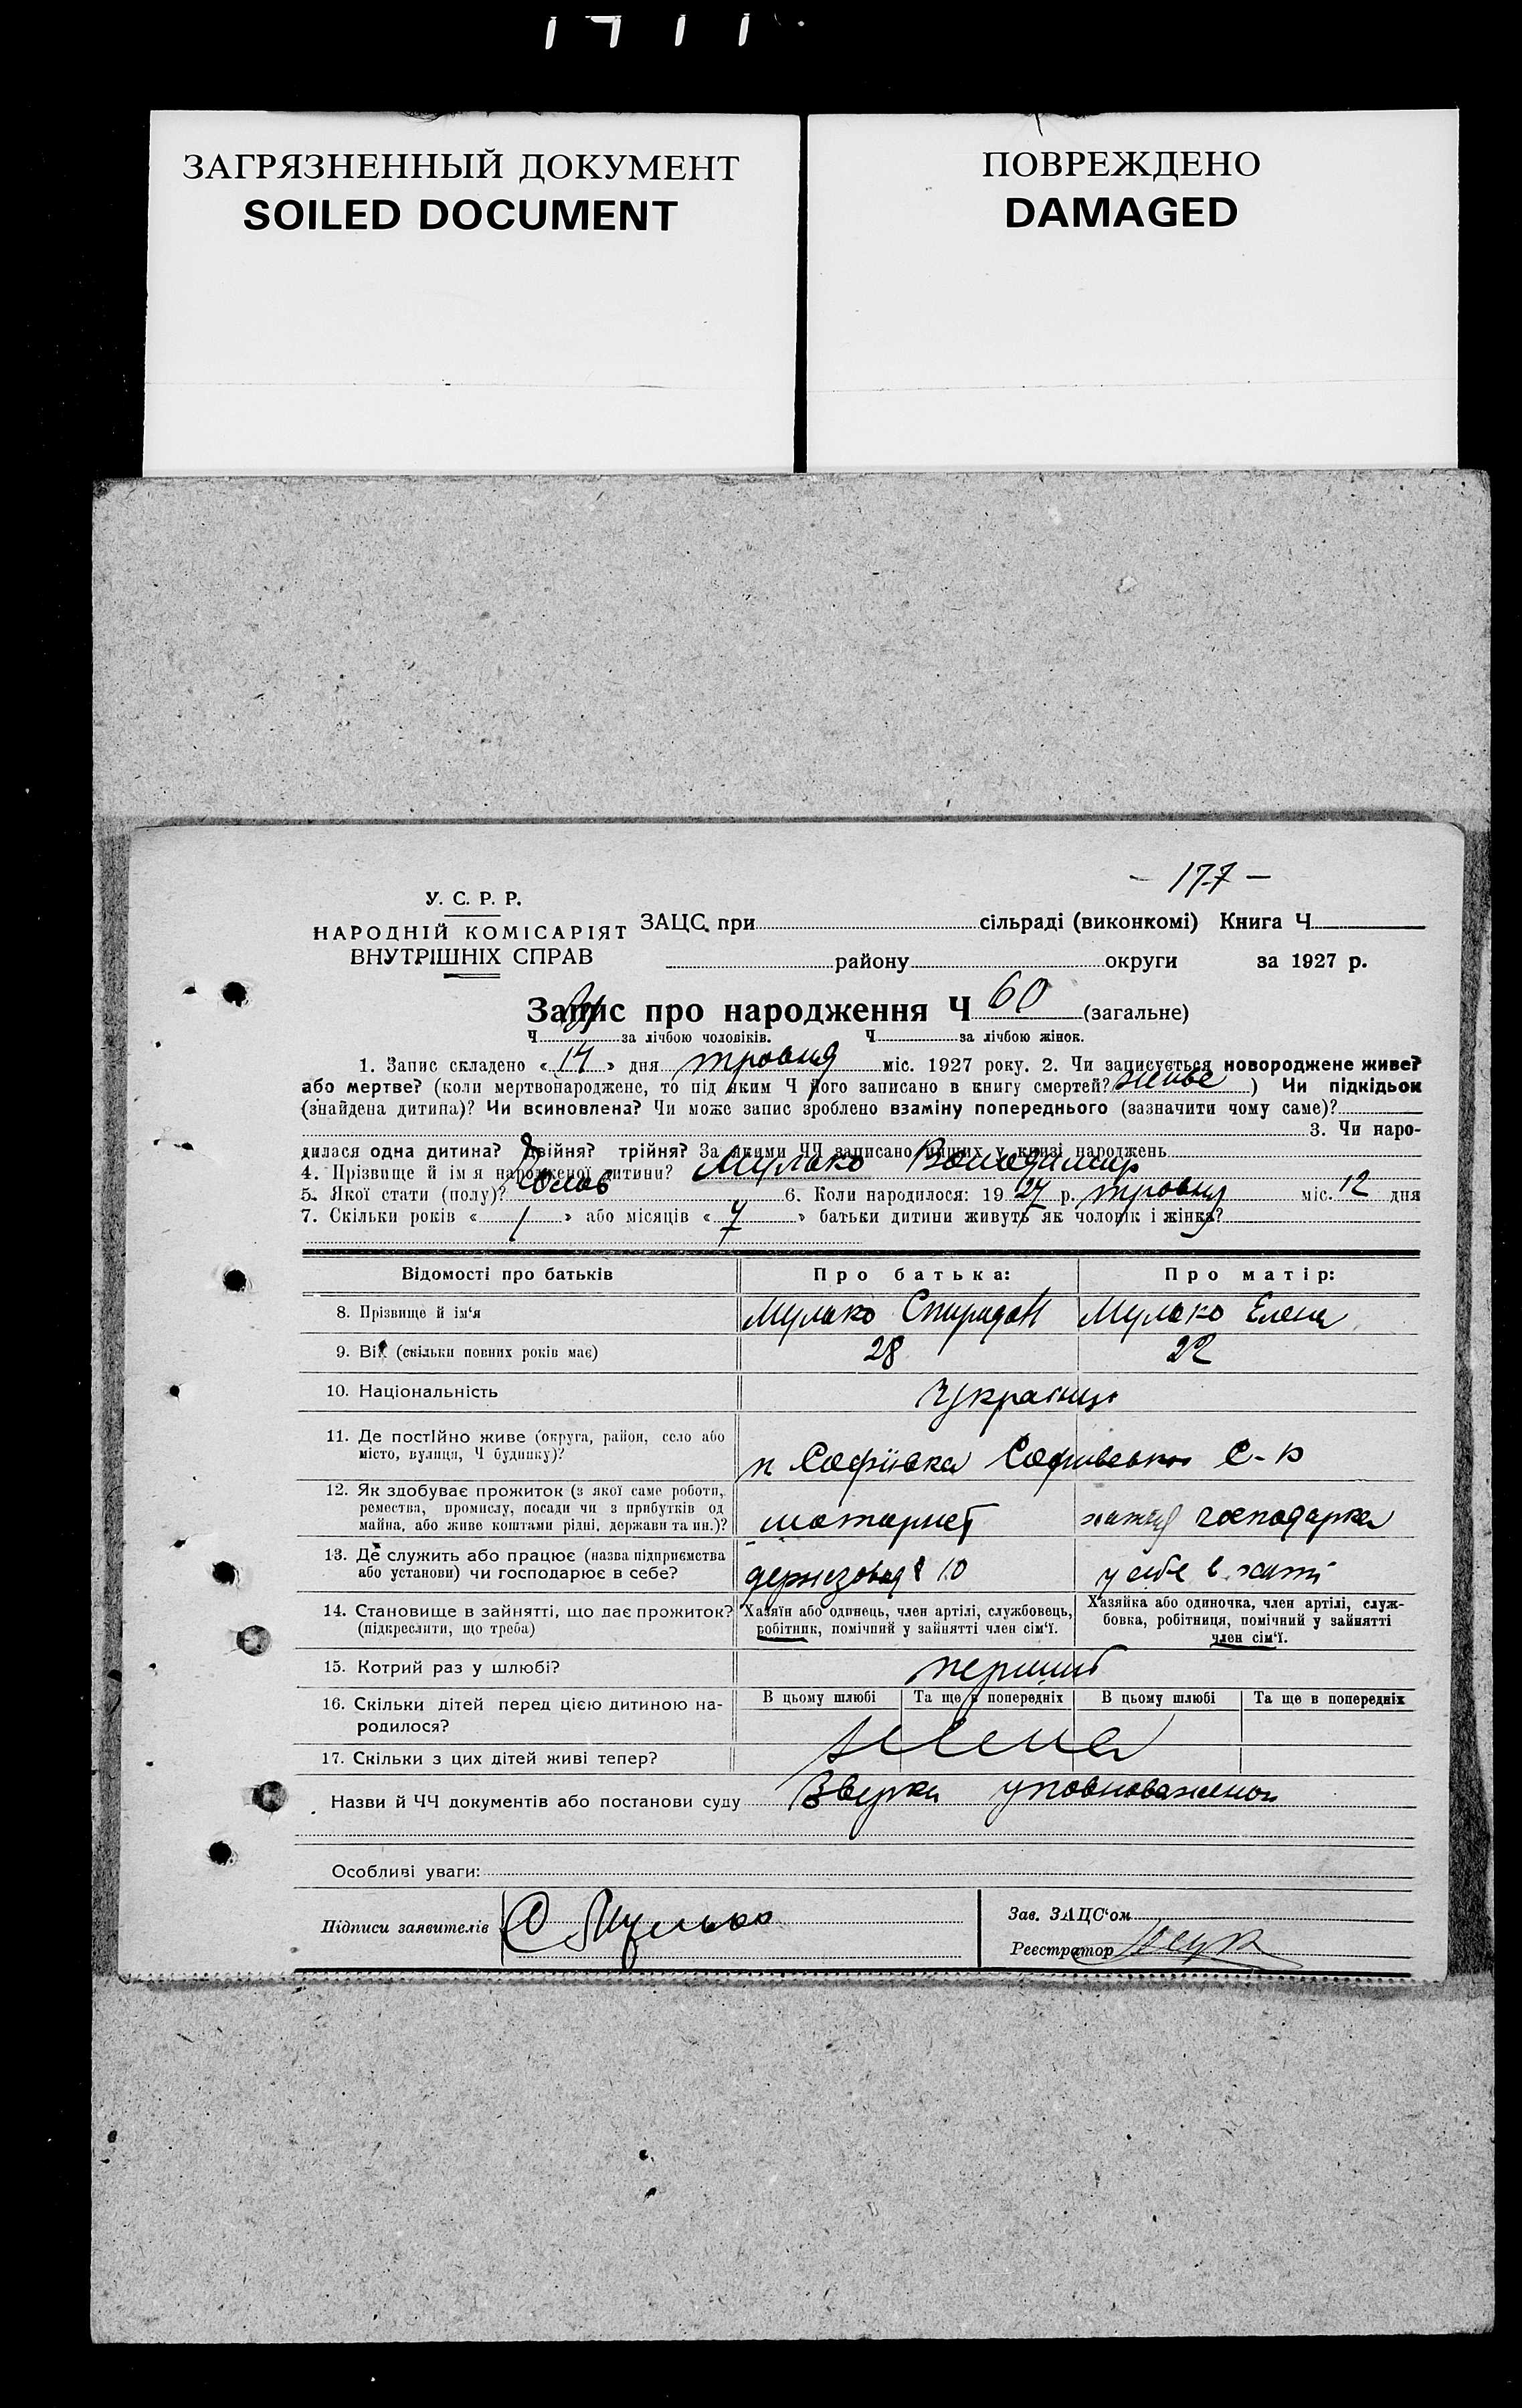 ЗАГРЯЗНЕННЫЙ ДОКУМЕНТ
SOILED DOCUMENT
ПОВРЕЖДЕНО
DAMAGED
– 177 –
У. С. Р. Р.
НАРОДНІЙ КОМІСАРІЯТ
ВНУТРІШНІХ СПРАВ
ЗАЦС при сільраді (виконкомі) Книга Ч
району округи за 1927 р.
Запис про народження Ч 60 (загальне)
Ч за лічбою чоловіків. Ч за лічбою жінок.
1. Запис складено « 14 » дня травня міс. 1927 року. 2. Чи записується новороджене живе?
або мертве? (коли мертвонароджене, то під яким Ч його записано в книгу смертей? живе ) Чи підкідьок
(знайдена дитина)? Чи всиновлена? Чи може запис зроблено взаміну попереднього (зазначити чому саме)?
3. Чи наро-
дилася одна дитина? двійня? трійня? За якими ЧЧ записано инших у книзі народжень
4. Прізвище й ім я народженої дитини? Мулако Володимир
5. Якої стати (полу)? Чолов 6. Коли народилося: 19 27 р. травня міс. 12 дня
7. Скільки років « 1 » або місяців « 7 » батьки дитини живуть як чоловік і жінка?
Відомості про батьків Про батька: Про матір:
8. Прізвище й ім‘я Мулако Спиридон Мулако Елена
9. Вік (скільки повних років має) 28 22
10. Національність Українці
11. Де постійно живе (округа, район, село або
місто, вулиця, Ч будинку)?
с Софіївка С-к
12. Як здобуває прожиток (з якої саме роботи,
ремества, промислу, посади чи з прибутків од
майна, або живе коштами рідні, держави та ин.)?
господарка
13. Де служить або працює (назва підприємства
або установи) чи господарює в себе?
10 у себе в хаті
14. Становище в зайнятті, що дає прожиток?
(підкреслити, що треба)
Хазяїн або одинець, член артілі, службовець,
робітник, помічний у зайнятті член сім‘ї.
Хазяйка або одиночка, член артілі, служ-
бовка, робітниця, помічний у зайнятті
член сім‘ї.
15. Котрий раз у шлюбі? перший
16. Скільки дітей перед цією дитиною на-
родилося?
В цьому шлюбі Та ще в попередніх В цьому шлюбі Та ще в попередніх
17. Скільки з цих дітей живі тепер?
Назви й ЧЧ документів або постанови суду
Особливі уваги:
Підписи заявителів С Мулако
Зав. ЗАЦС‘ом
Реєстратор